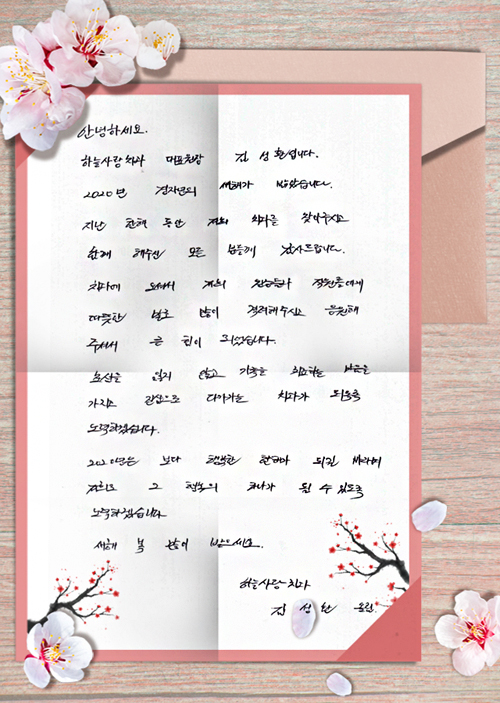 안녕하세요.
하늘사랑치과 대표원장 김성환입니다.
2020년 경자년의 새해가 밝았습니다.
지난 한해 동안 저희 치과를 찾아주시고
함께 해주신 모든 분들께 감사드립니다.
치과에 오셔서 저희 직원들에게
따뜻한 말로 많이 격려해주시고 응원해
주셔서 큰 힘이 되었습니다.
초심을 잃지 않고 마음을
가지고 진심으로 다가가는 치과가 되도록
노력하겠습니다.
2020년은 보다 행복한 한해가 되길 바라며
저희도 그 행복의 하나가 될 수 있도록
노력하겠습니다
새해 복 많이 받으세요.
하늘사랑치과
김성환 올림